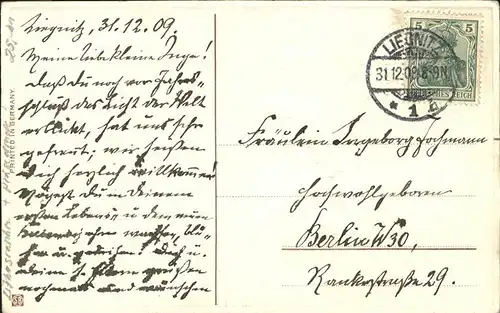 Liegnitz, 31.12.09.
Meine liebe kleine Inge!
Daß du noch vor Jahres-
schluß das Licht der Welt
erblickt, hat uns sehr
gefreut; wir heißen
Dich herzlich willkommen!
Mögest Du in Deinem
ersten Lebens- u dem neuen
wachsen, blü-
hen u. gedeihen! Dich u.
deine l. Eltern grüßen
nochmals und wünschen
PRINTED IN GERMANY.
LIEGNITZ
31.12.09. 8-9N
* 1
5 5
DEUTSCHES REICH
Fräulein Ingeborg Hochmann
Hochwohlgeboren
Berlin W30,
Rankestraße 29.